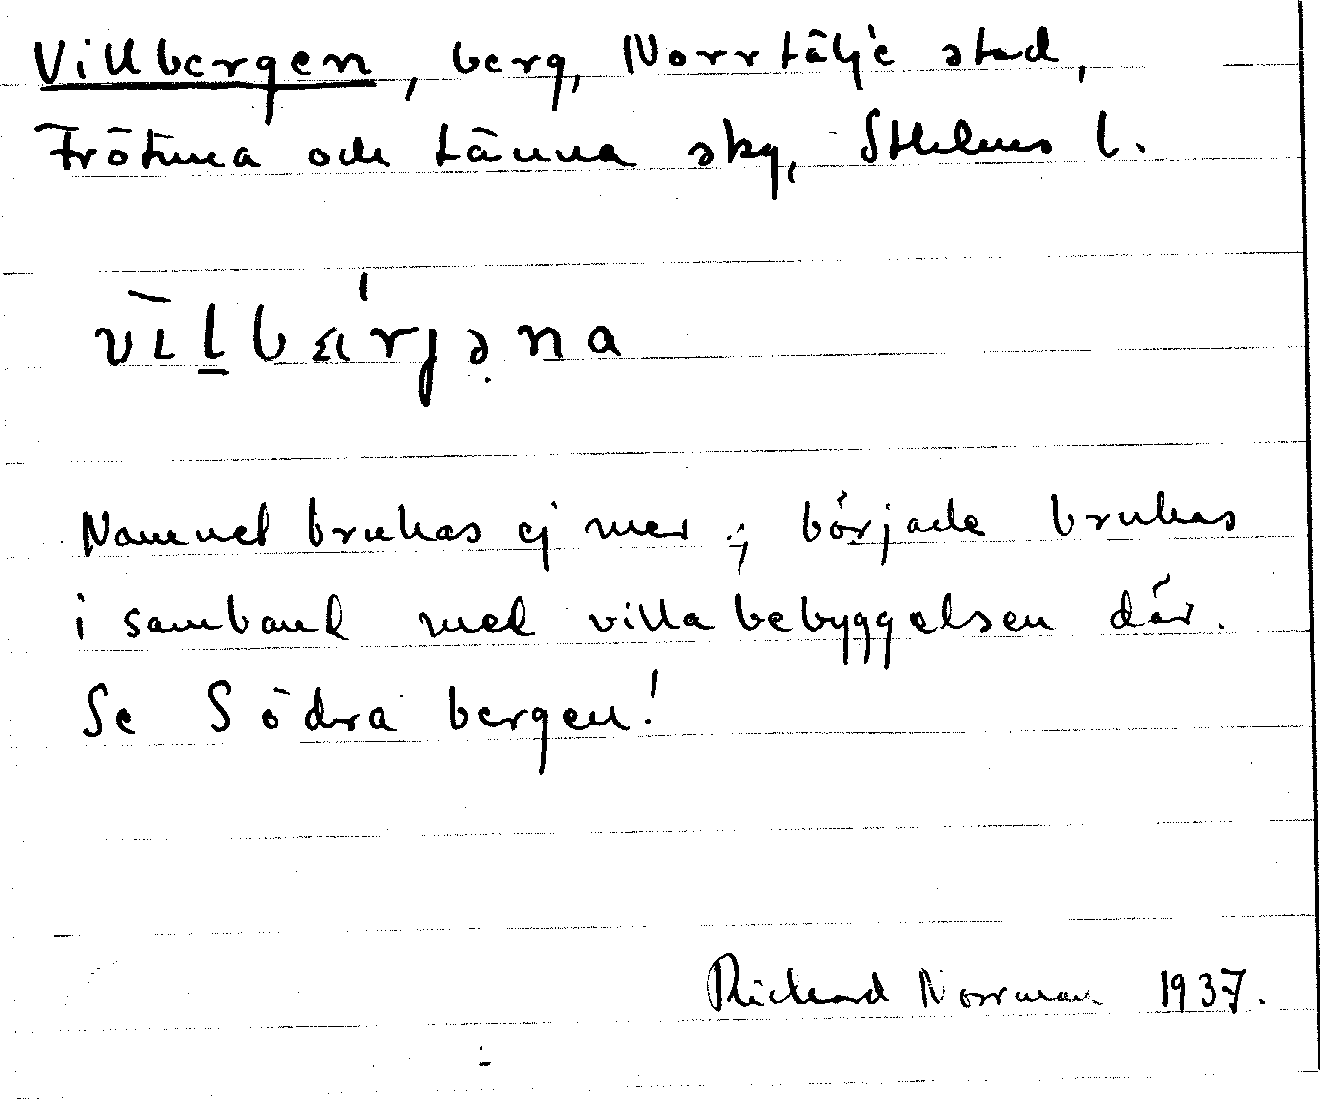 Villbergen, berg, Norrtälje stad,
Frötuna och Länna skg, Sthlms l.
vìlbærjəna
Namnet brukas ej mer; började brukas
i samband med villabebyggelsen där.
Se Södra bergen!
Richard Norrman 1937.